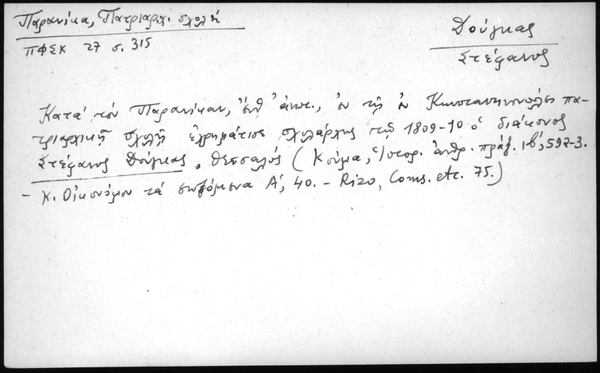 Παρανίκα, Πατριαρχ. σχολή
ΠΦΣΚ 27 σ. 315
Δούγκας
Στέφανος
Κατά τον Παρανίκαν, ἔνθ' ἀνωτ., ἐν τῇ ἐν Κωνσταντινουπόλει πα-
τριαρχικῇ σχολῇ ἐχρημάτισε σχολάρχης τῷ 1809-10 ὁ διάκονος
Στέφανος Δούγκας, Θεσσαλός (Κούμα, Ἱστορ. ἀνθρ. πράξ. ιβ', 592-3.
- Κ. Οἰκονόμου τά σωζόμενα Α', 40. - Rizo, Cours. etc. 75.)